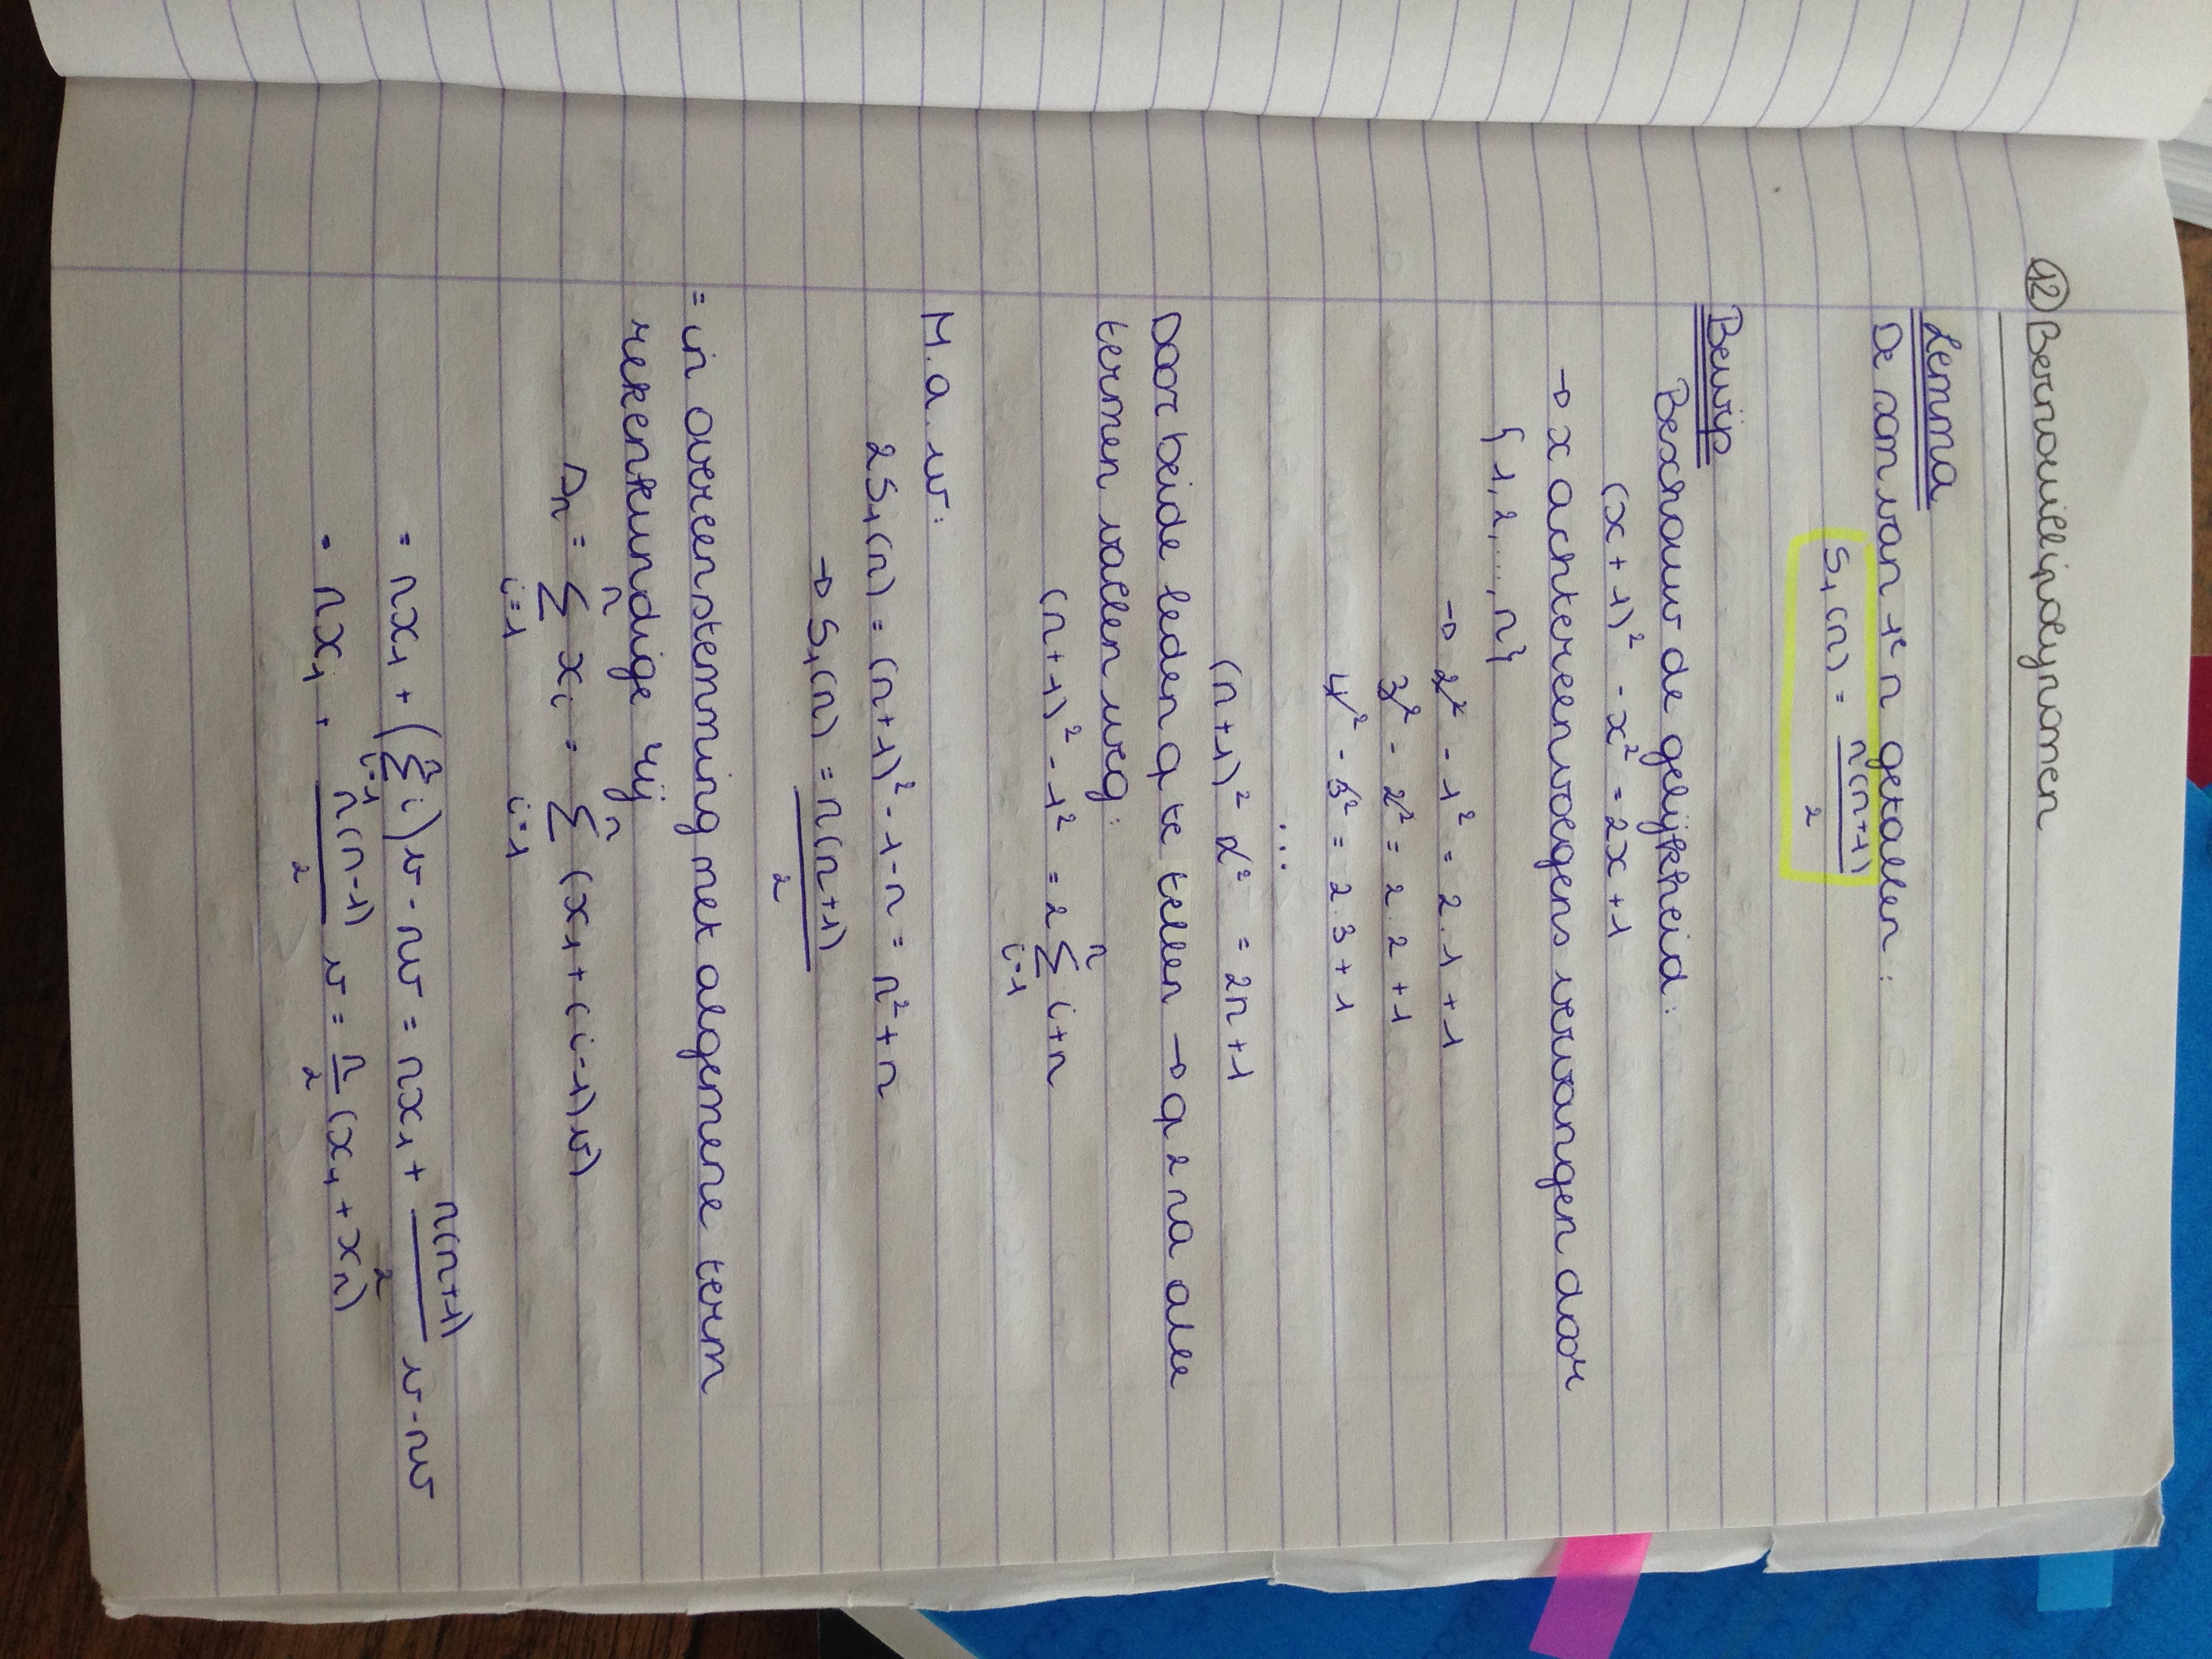 ⑫ Bernouillipolynomen
Lemma
De som van 1e n getallen:
S₁(n) = n(n+1)/2
Bewijs
Beschouw de gelijkheid:
(x+1)² - x² = 2x+1
→ x achtereenvolgens vervangen door
{1, 2, ..., n}
→ 2² - 1² = 2.1 + 1
3² - 2² = 2.2 + 1
4² - 3² = 2.3 + 1
...
(n+1)² n² = 2n+1
Door beide leden op te tellen → op 2 na alle
termen vallen weg:
(n+1)² - 1² = 2 ∑ⁿᵢ₌₁ i+n
M.a.w:
2S₁(n) = (n+1)² - 1 - n = n² + n
→ S₁(n) = n(n+1)/2
= in overeenstemming met algemene term
rekenkundige rij
sₙ = ∑ⁿᵢ₌₁ xᵢ = ∑ⁿᵢ₌₁ (x₁ + (i-1)v)
= nx₁ + (∑ⁿᵢ₌₁ i)v - nv = nx₁ + n(n+1)/2 v - nv
= nx₁ + n(n-1)/2 v = n/2 (x₁ + xₙ)